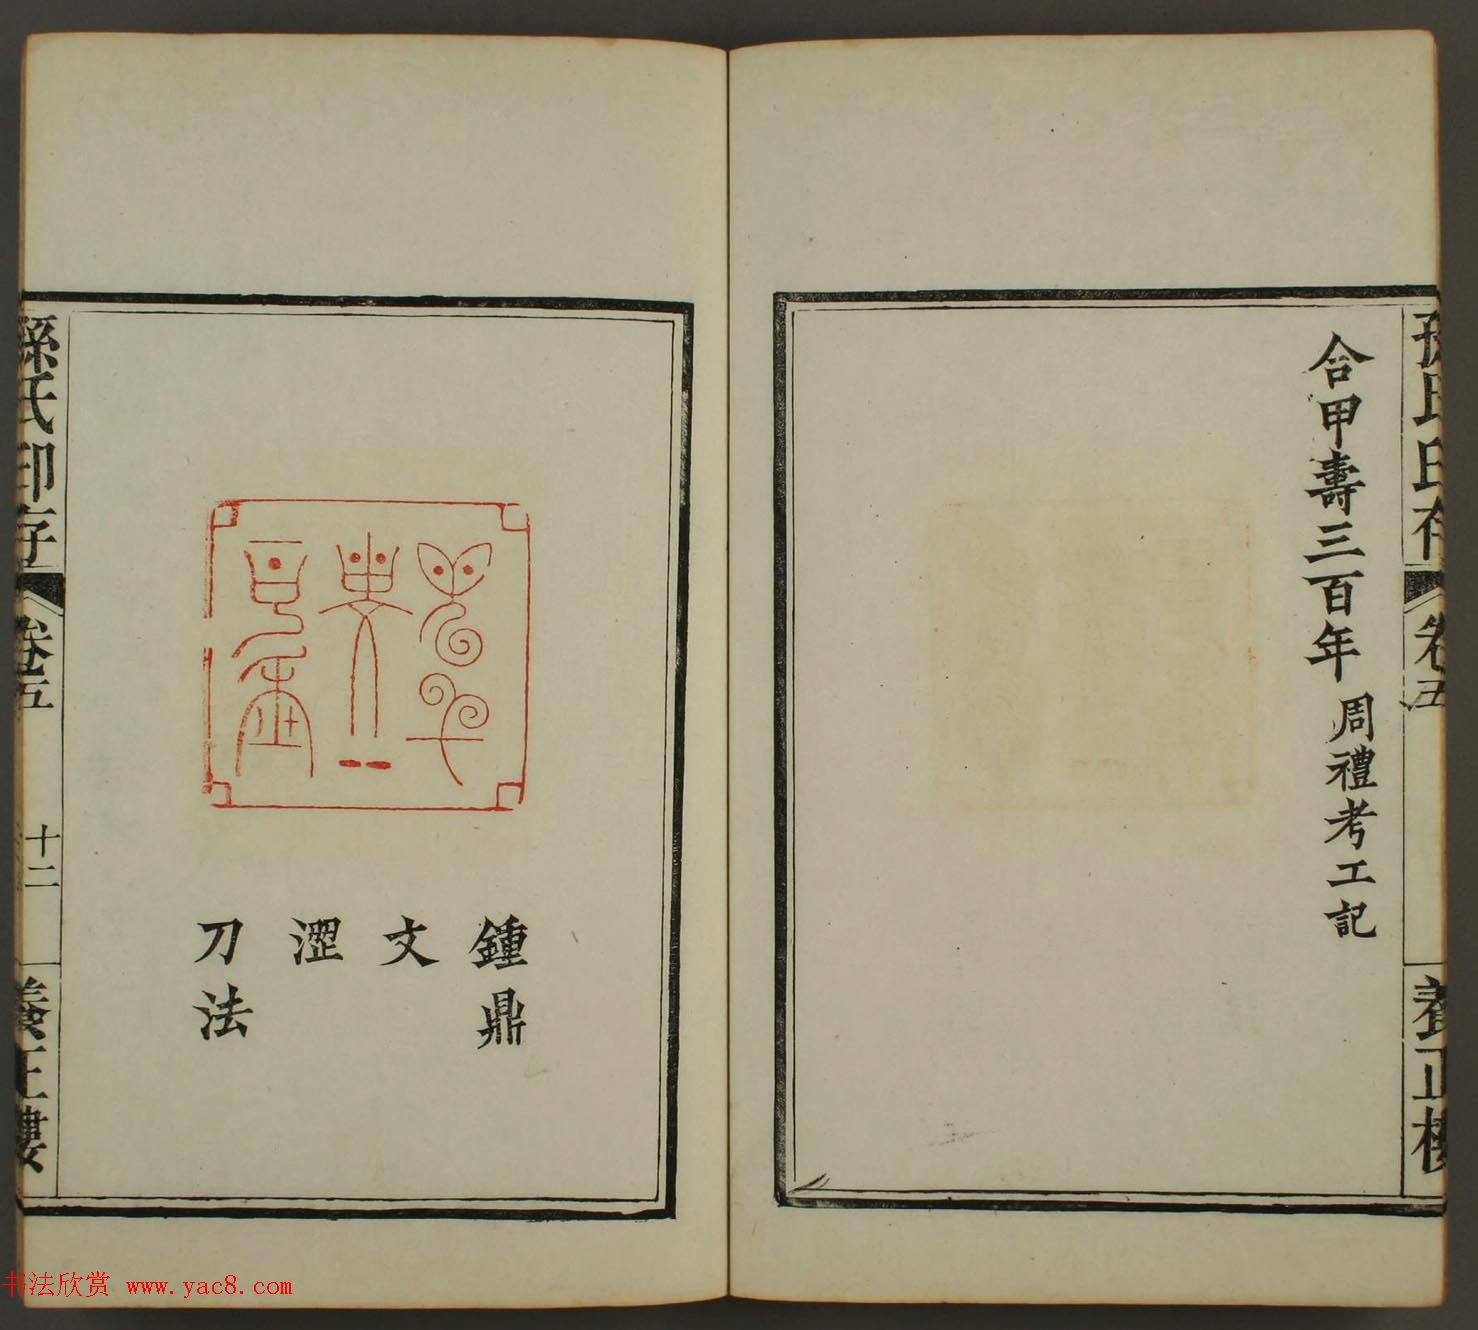 孫氏印存
卷五
養正樓
合甲壽三百年 周禮考工記
鍾鼎
文
澀
刀法
孫氏印存
卷五
十二
養正樓
书法欣赏 www.yac8.com